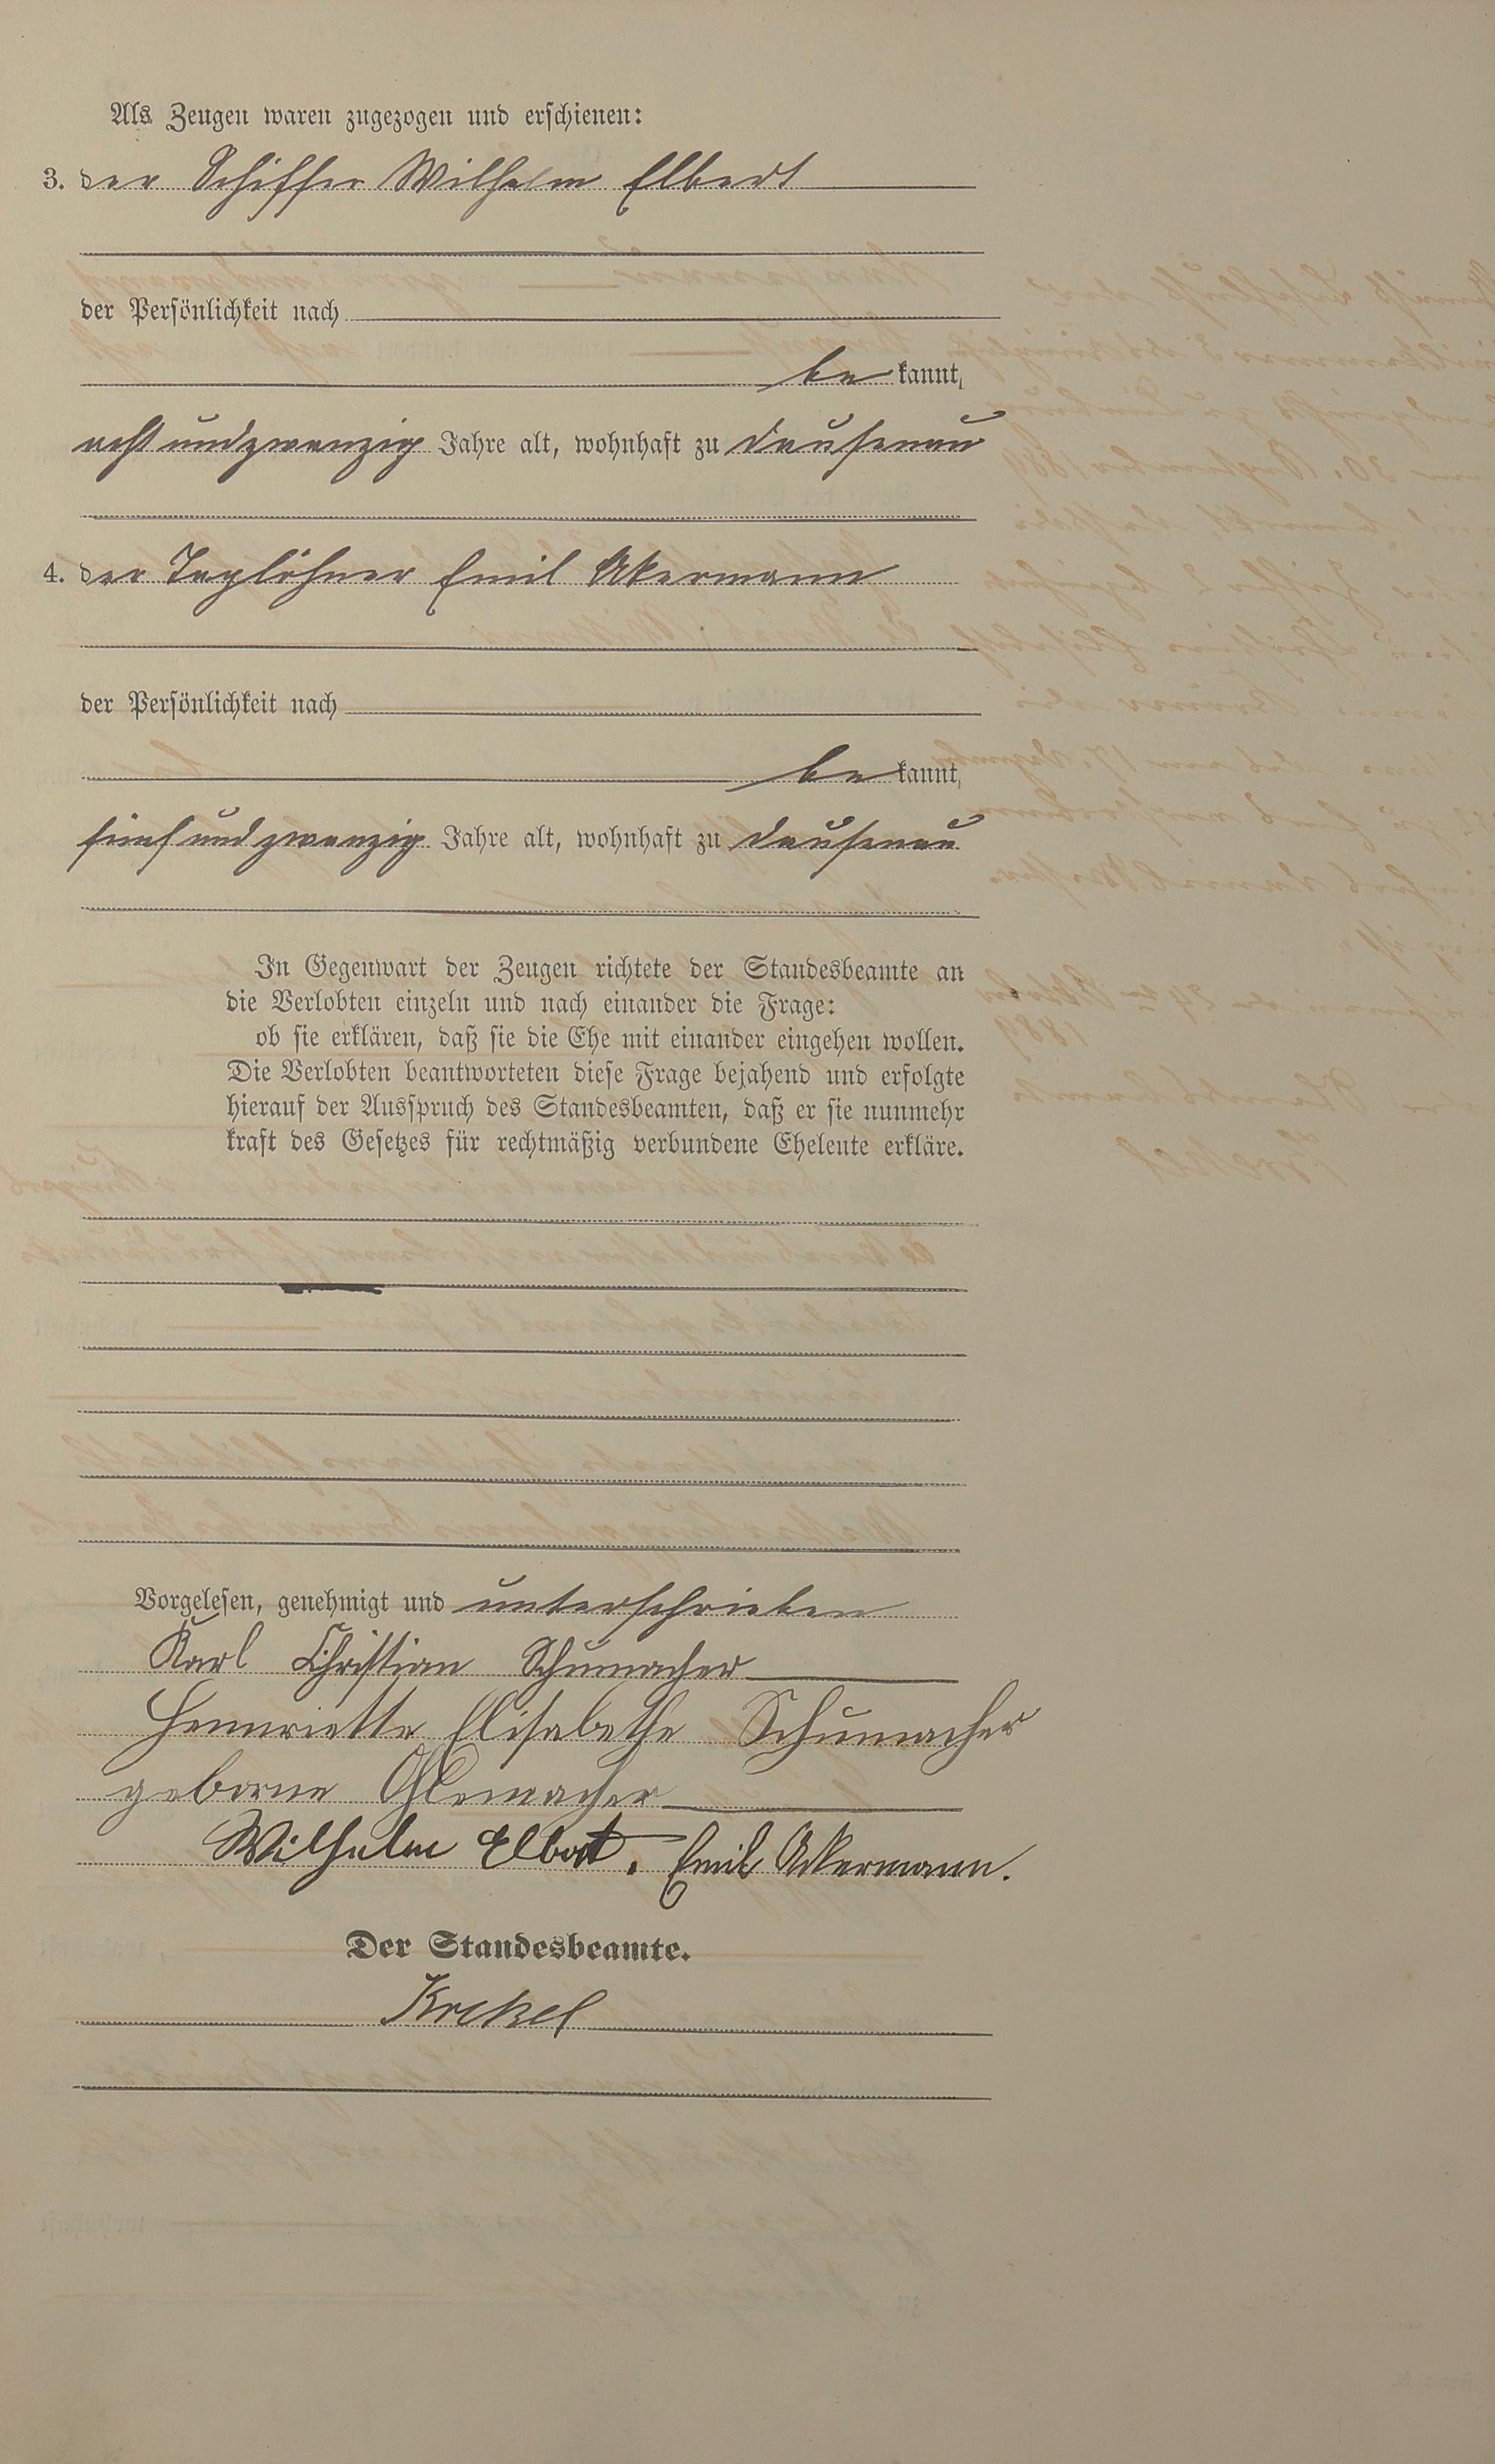 Als Zeugen waren zugezogen und erschienen:
3. der Schiffer Wilhelm Elbert
der Persönlichkeit nach
be kannt,
acht und zwanzig Jahre alt, wohnhaft zu Dausenau
4. der Taglöhner Emil Akermann
der Persönlichkeit nach
be kannt,
fünf und zwanzig Jahre alt, wohnhaft zu Dausenau
In Gegenwart der Zeugen richtete der Standesbeamte an
die Verlobten einzeln und nach einander die Frage:
ob sie erklären, daß sie die Ehe mit einander eingehen wollen.
Die Verlobten beantworteten diese Frage bejahend und erfolgte
hierauf der Ausspruch des Standesbeamten, daß er sie nunmehr
kraft des Gesetzes für rechtmäßig verbundene Eheleute erkläre.
Vorgelesen, genehmigt und unterschrieben
Karl Christian Schumacher
Hennriette Elisabethe Schumacher
geborne Ohlemacher
Wilhelm Elbert. Emil Akermann.
Der Standesbeamte.
Krekel